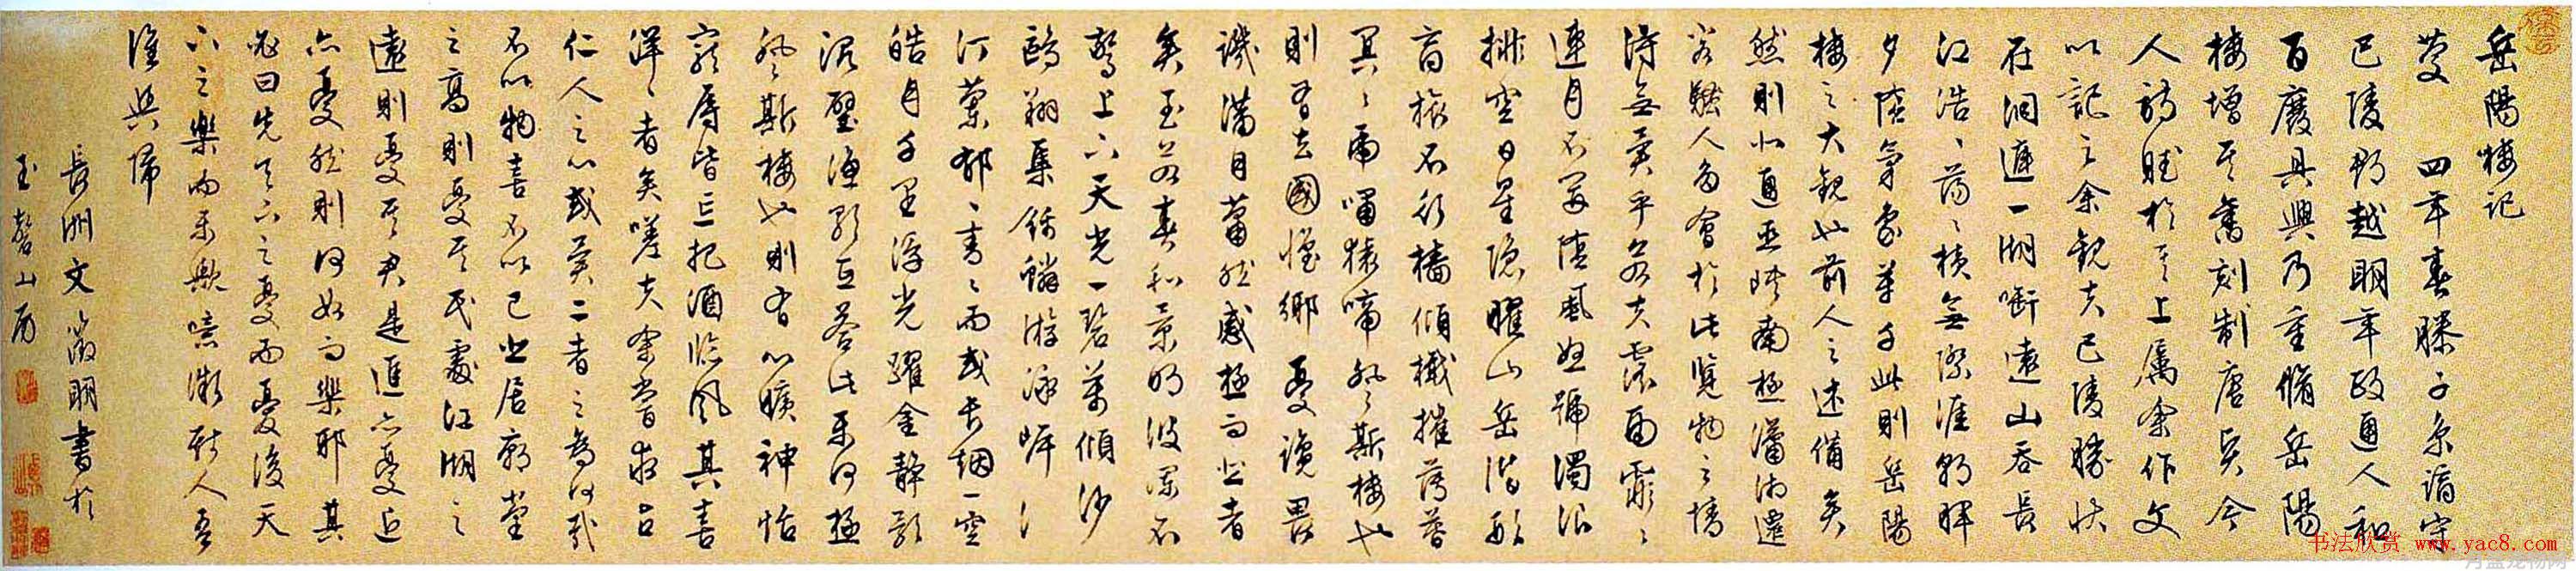 岳陽樓記
慶 四年春滕子京謫守
巴陵郡越明年政通人和
百廢具興乃重脩岳陽
樓增其舊刻制唐賢今
人詩賦於其上屬余作文
以記之余觀夫巴陵勝狀
在洞庭一湖銜遠山吞長
江浩〻蕩〻橫無際涯朝暉
夕陰氣象萬千此則岳陽
樓之大觀也前人之述備矣
然則北通巫峽南極瀟湘遷
客騷人多會於此覽物之情
得無異乎若夫霪雨霏〻
連月不開陰風怒號濁浪
排空日星隱曜山岳潛形
商旅不行檣傾檝摧薄暮
冥〻虎嘯猿啼登斯樓也
則有去國懷鄉憂讒畏
譏滿目蕭然感極而悲者
矣至若春和景明波瀾不
驚上下天光一碧萬頃沙
鷗翔集錦鱗游泳岸
汀蘭郁〻青〻而或長烟一空
皓月千里浮光躍金靜影
沉璧漁歌互答此樂何極
登斯樓也則有心曠神怡
寵辱皆忘把酒臨風其喜
洋〻者矣嗟夫余嘗求古
仁人之心或異二者之為何哉
不以物喜不以己悲居廟堂
之高則憂其民處江湖之
遠則憂其君是進亦憂退
亦憂然則何如而樂耶其
必曰先天下之憂而憂後天
下之樂而樂歟噫微斯人吾
誰與歸
長洲文徵明書於
玉磬山房
书法欣赏 www.yac8.com